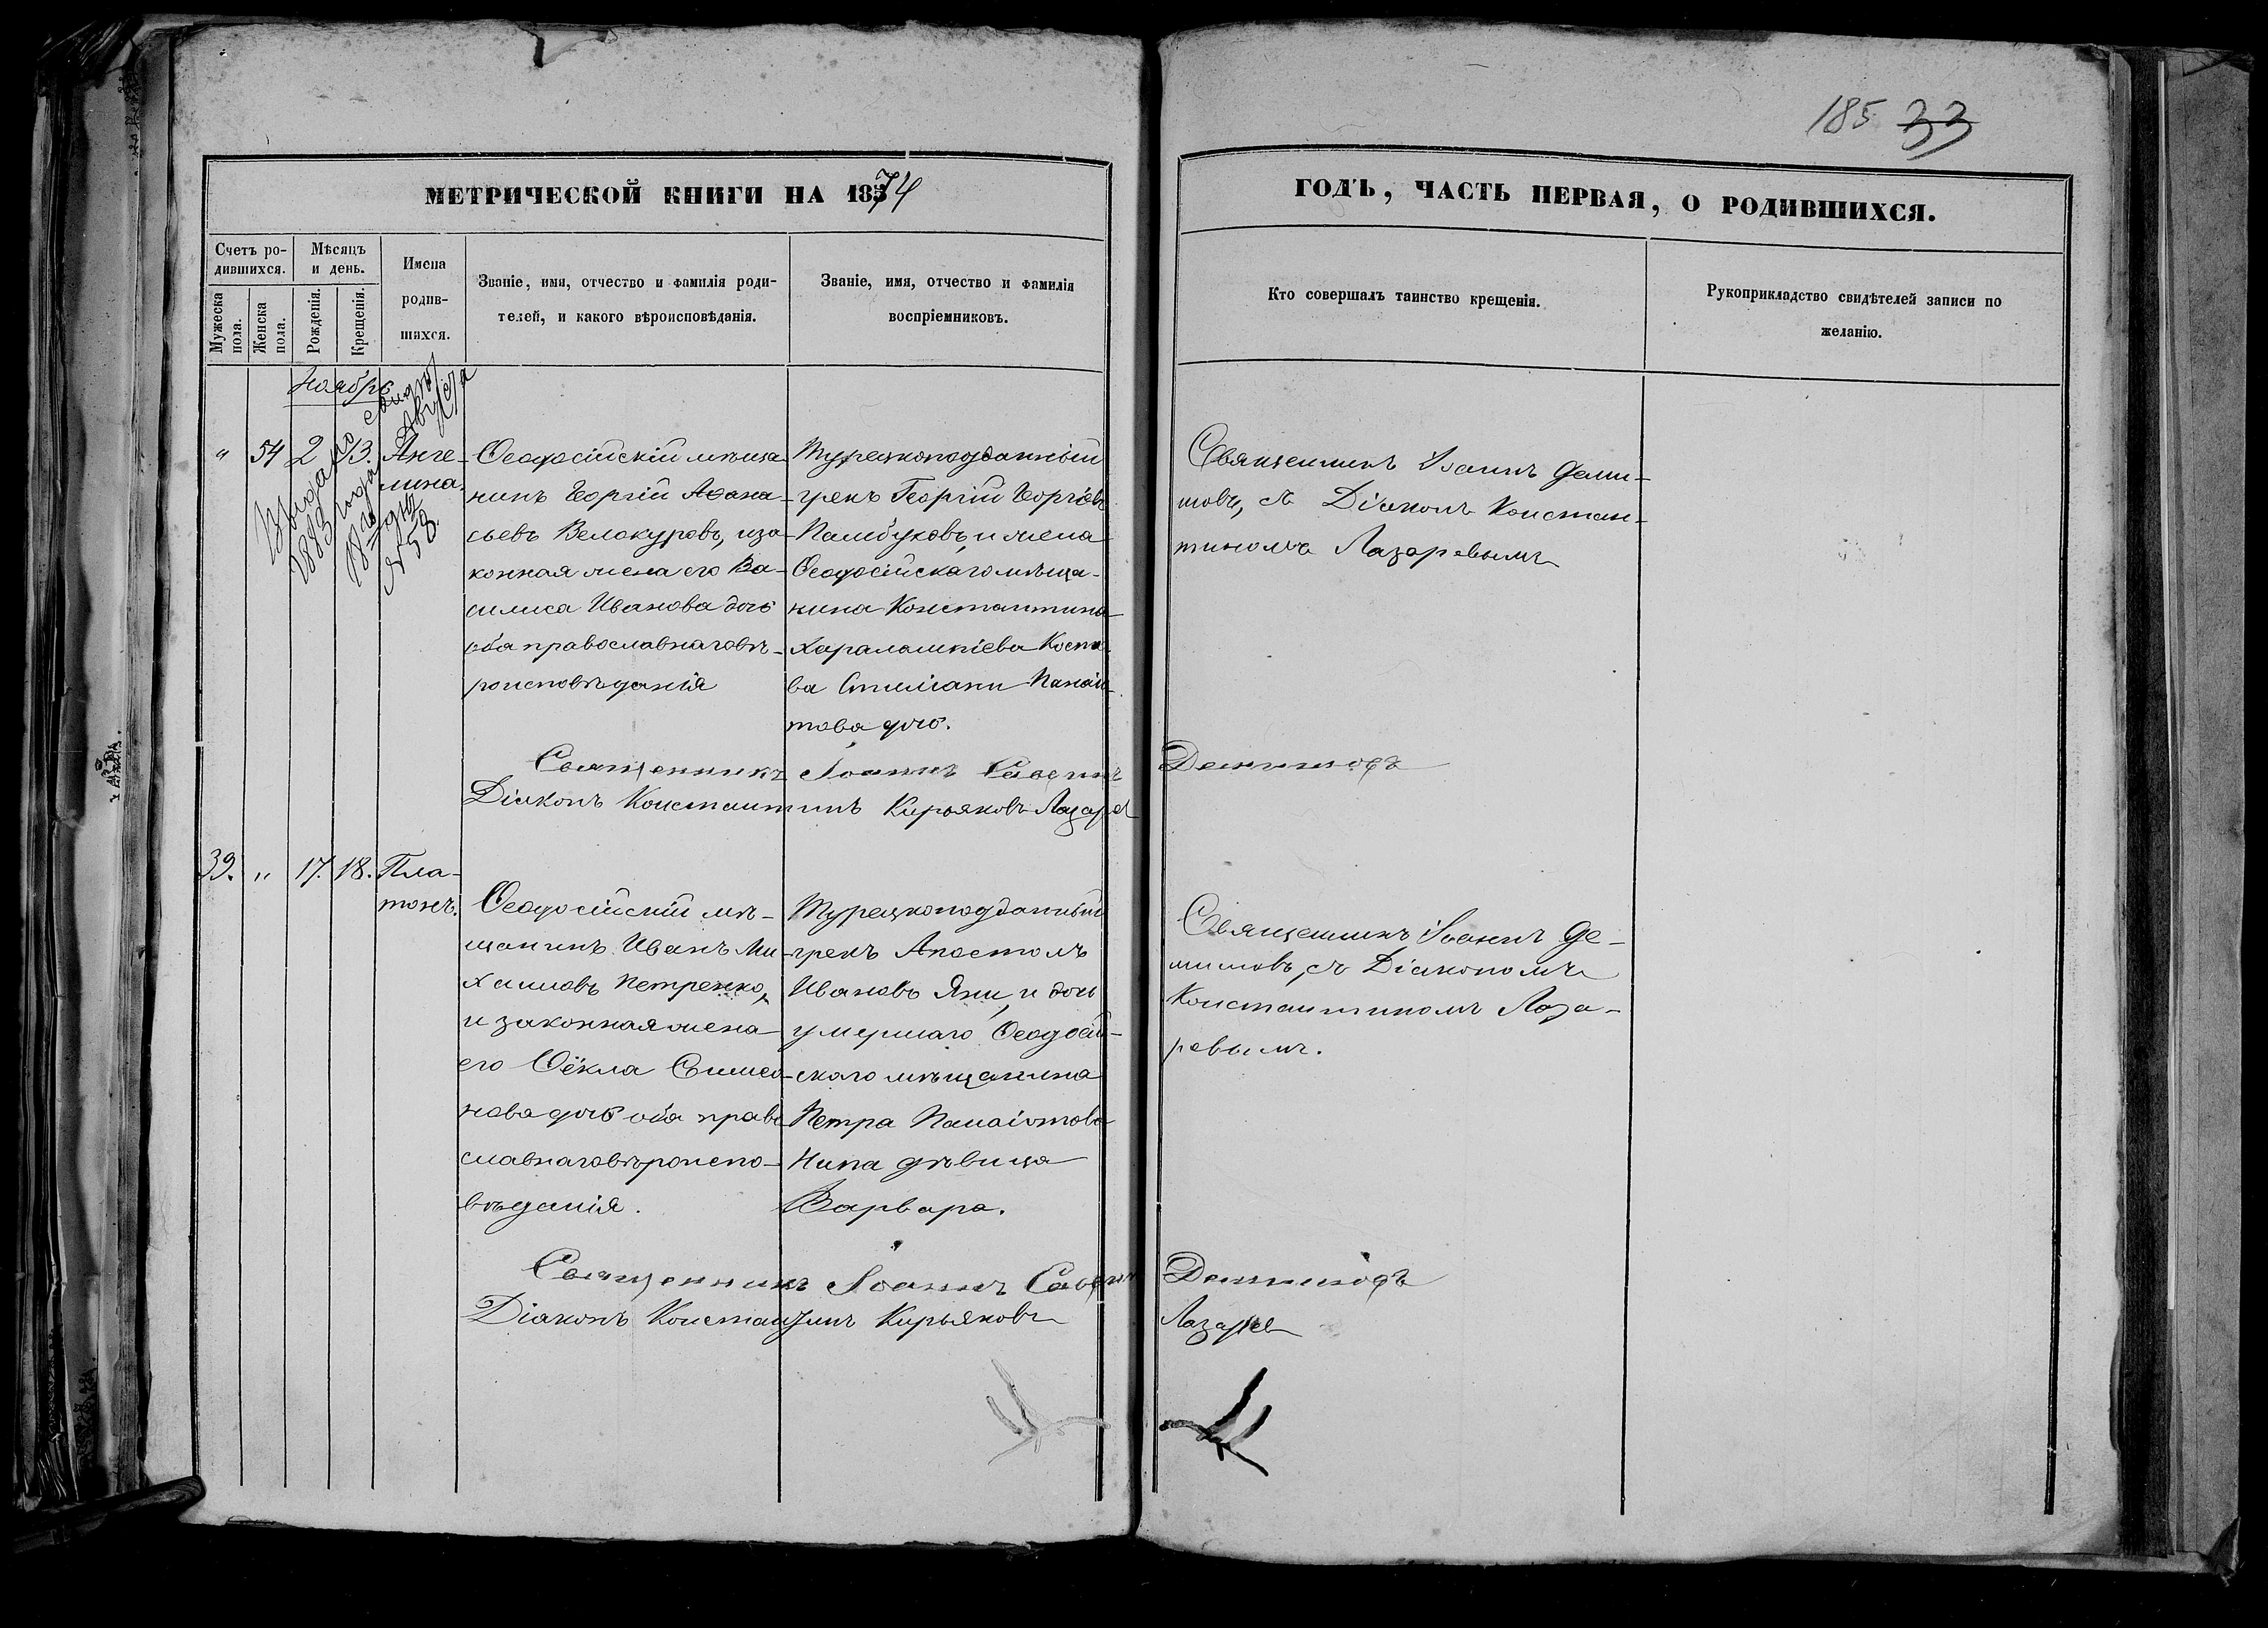 185 33
МЕТРИЧЕСКОЙ КНИГИ НА 1874
ГОДЪ, ЧАСТЬ ПЕРВАЯ, О РОДИВШИХСЯ.
Счетъ ро-
дившихся.
Мужеска
пола.
Женска
пола.
Мѣсяцъ
и день.
Рожденія.
Крещенія.
Имена
родив-
шихся.
Званіе, имя, отчество и фамилія роди-
телей, и какого вѣроисповѣданія.
Званіе, имя, отчество и фамилія
воспріемниковъ.
Кто совершалъ таинство крещенія.
Рукоприкладство свидѣтелей записи по
желанію.
Ноябрь
Выдано
1883 года
Августа
18
№ 58
" 54 2 13. Анге-
лина.
Ѳеодосійскій мѣща
нинъ Георгій Аѳана-
сьевъ Велокуровъ, и за-
конная жена его Ва-
силиса Иванова дочь
оба православнаго вѣ-
роисповѣданія
Турецкоподданный
грекъ Георгій Георгіевъ
Памбуковъ, и жена
Ѳеодосійскаго мѣща-
нина Константина
Харалампіева Коста-
ва Стиліани Панаіо-
това дочь.
Священникъ Іоаннъ Деми-
товъ, съ Діякомъ Констан-
тиномъ Лазаревымъ
Священникъ Іоаннъ
Діяконъ Константинъ Кирьяковъ Лазарев
39. " 17. 18. Пла-
тонъ.
Ѳеодосійскій мѣ-
щанинъ Иванъ Ми-
хаиловъ Петренко,
и законная жена
его Ѳёкла Симео-
нова дочь оба право
славнаго вѣроиспо-
вѣданія.
Турецкоподданный
грекъ Апостолъ
Ивановъ Яни, и дочь
умершаго Ѳеодосій-
скаго мѣщанина
Петра Панаіотова
Нина дѣвица
Варвара.
Священникъ Іоаннъ Де-
митовъ, съ Діякономъ
Константиномъ Лаза-
ревымъ.
Священникъ Іоаннъ
Діяконъ Константинъ Кирьяковъ
Лазарев